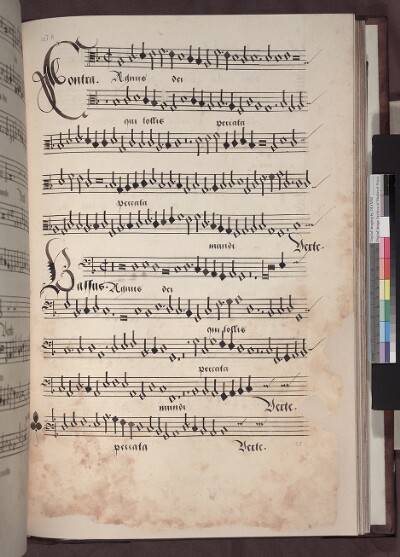 Contra. Agnus dei
qui tollis peccata
peccata
mundi Verte.
Bassus. Agnus dei
qui tollis
peccata
mundi Verte.
peccata Verte.